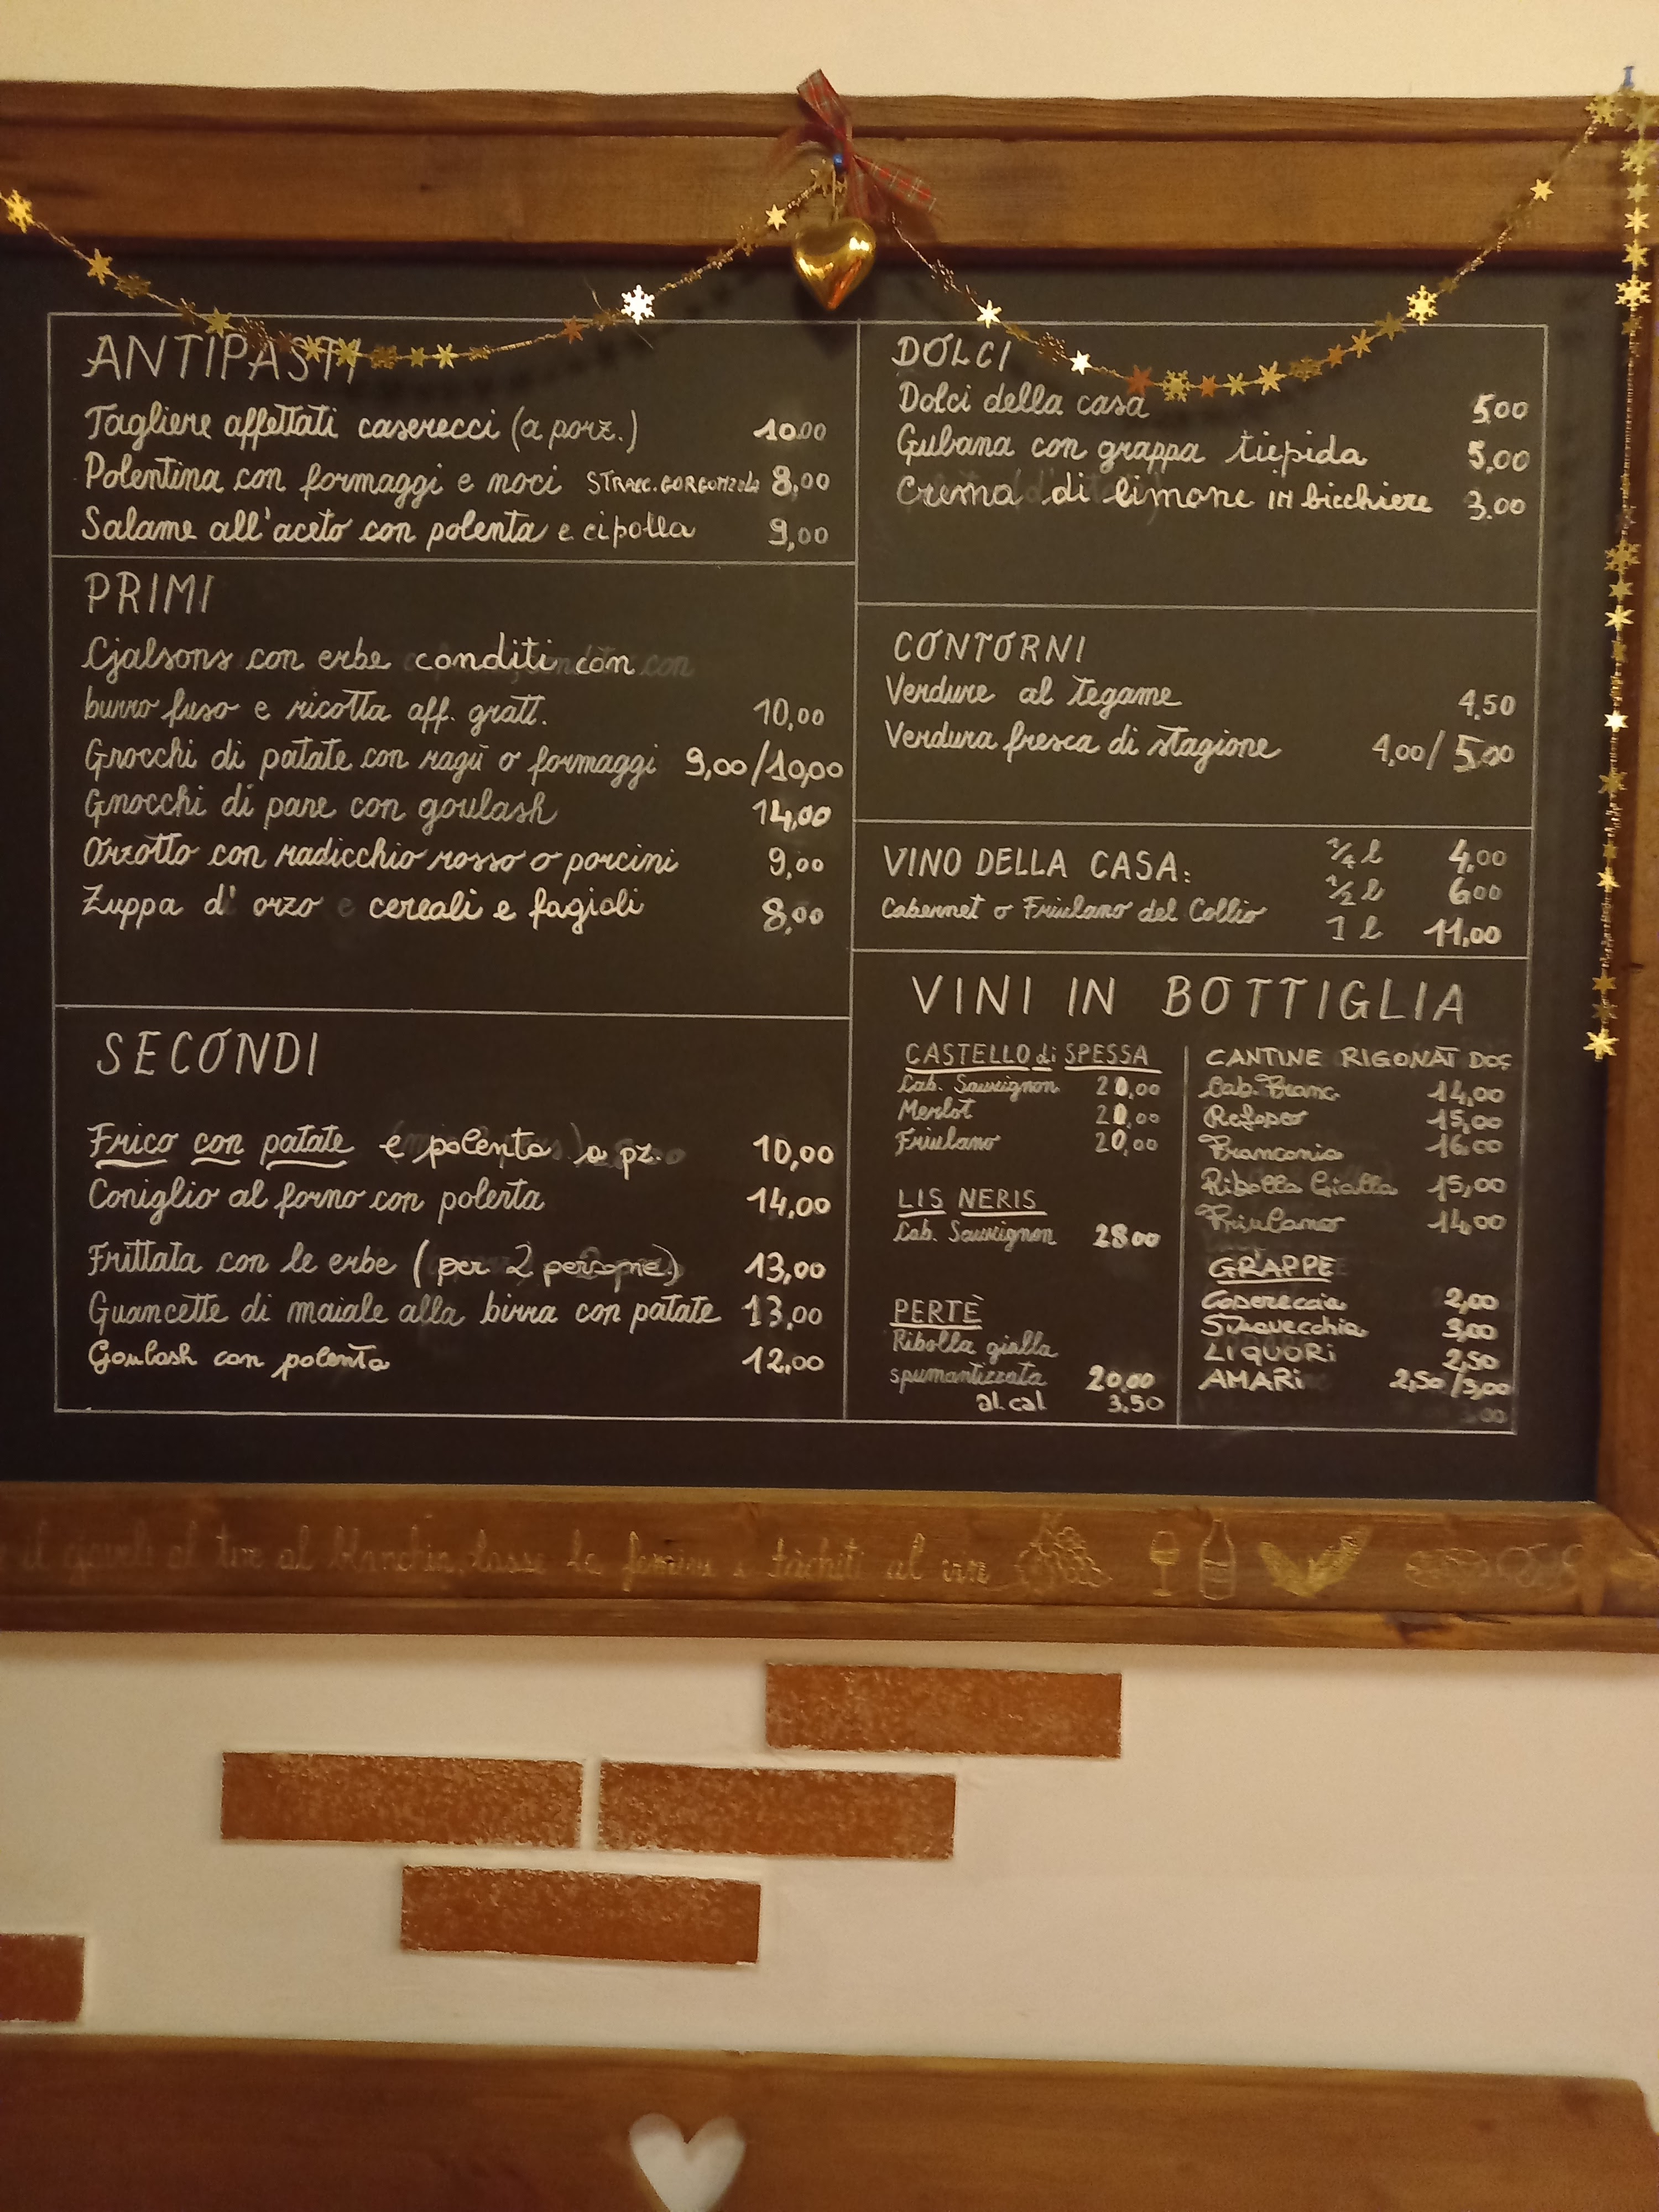 ANTIPASTI
Tagliere affettati caserecci (a porz.) 10.00
Polentina con formaggi e noci STRACC.GORGONZOLA 8,00
Salame all'aceto con polenta e cipolla 9,00
PRIMI
Cjalsons con erbe conditi con
burro fuso e ricotta aff. gratt. 10,00
Gnocchi di patate con ragù o formaggi 9,00/10,00
Gnocchi di pane con goulash 14,00
Orzotto con radicchio rosso o porcini 9,00
Zuppa di orzo e cereali e fagioli 8,00
SECONDI
Frico con patate e polenta a pz. 10,00
Coniglio al forno con polenta 14,00
Frittata con le erbe (per 2 persone) 13,00
Guancette di maiale alla birra con patate 13,00
Goulash con polenta 12,00
DOLCI
Dolci della casa 5,00
Gubana con grappa tiepida 5,00
Crema di limone IN bicchiere 3.00
CONTORNI
Verdure al tegame 4,50
Verdura fresca di stagione 4,00/5,00
VINO DELLA CASA: 1/4 l 4,00
1/2 l 6,00
Cabernet o Friulano del Collio 1 l 11,00
VINI IN BOTTIGLIA
CASTELLO di SPESSA
Cab. Sauvignon 20,00
Merlot 20,00
Friulano 20,00
LIS NERIS
Cab. Sauvignon 28,00
PERTÈ
Ribolla gialla
spumantizzata 20,00
al cal 3,50
CANTINE RIGONAT DOC
Cab. Franc. 14,00
Refosco 15,00
Franconia 16,00
Ribolla Gialla 15,00
Friulano 14,00
GRAPPE
Casereccia 2,00
Stravecchia 3,00
LIQUORI 2,50
AMARI 2,50/3,00
al blanchin, lasse la al vin